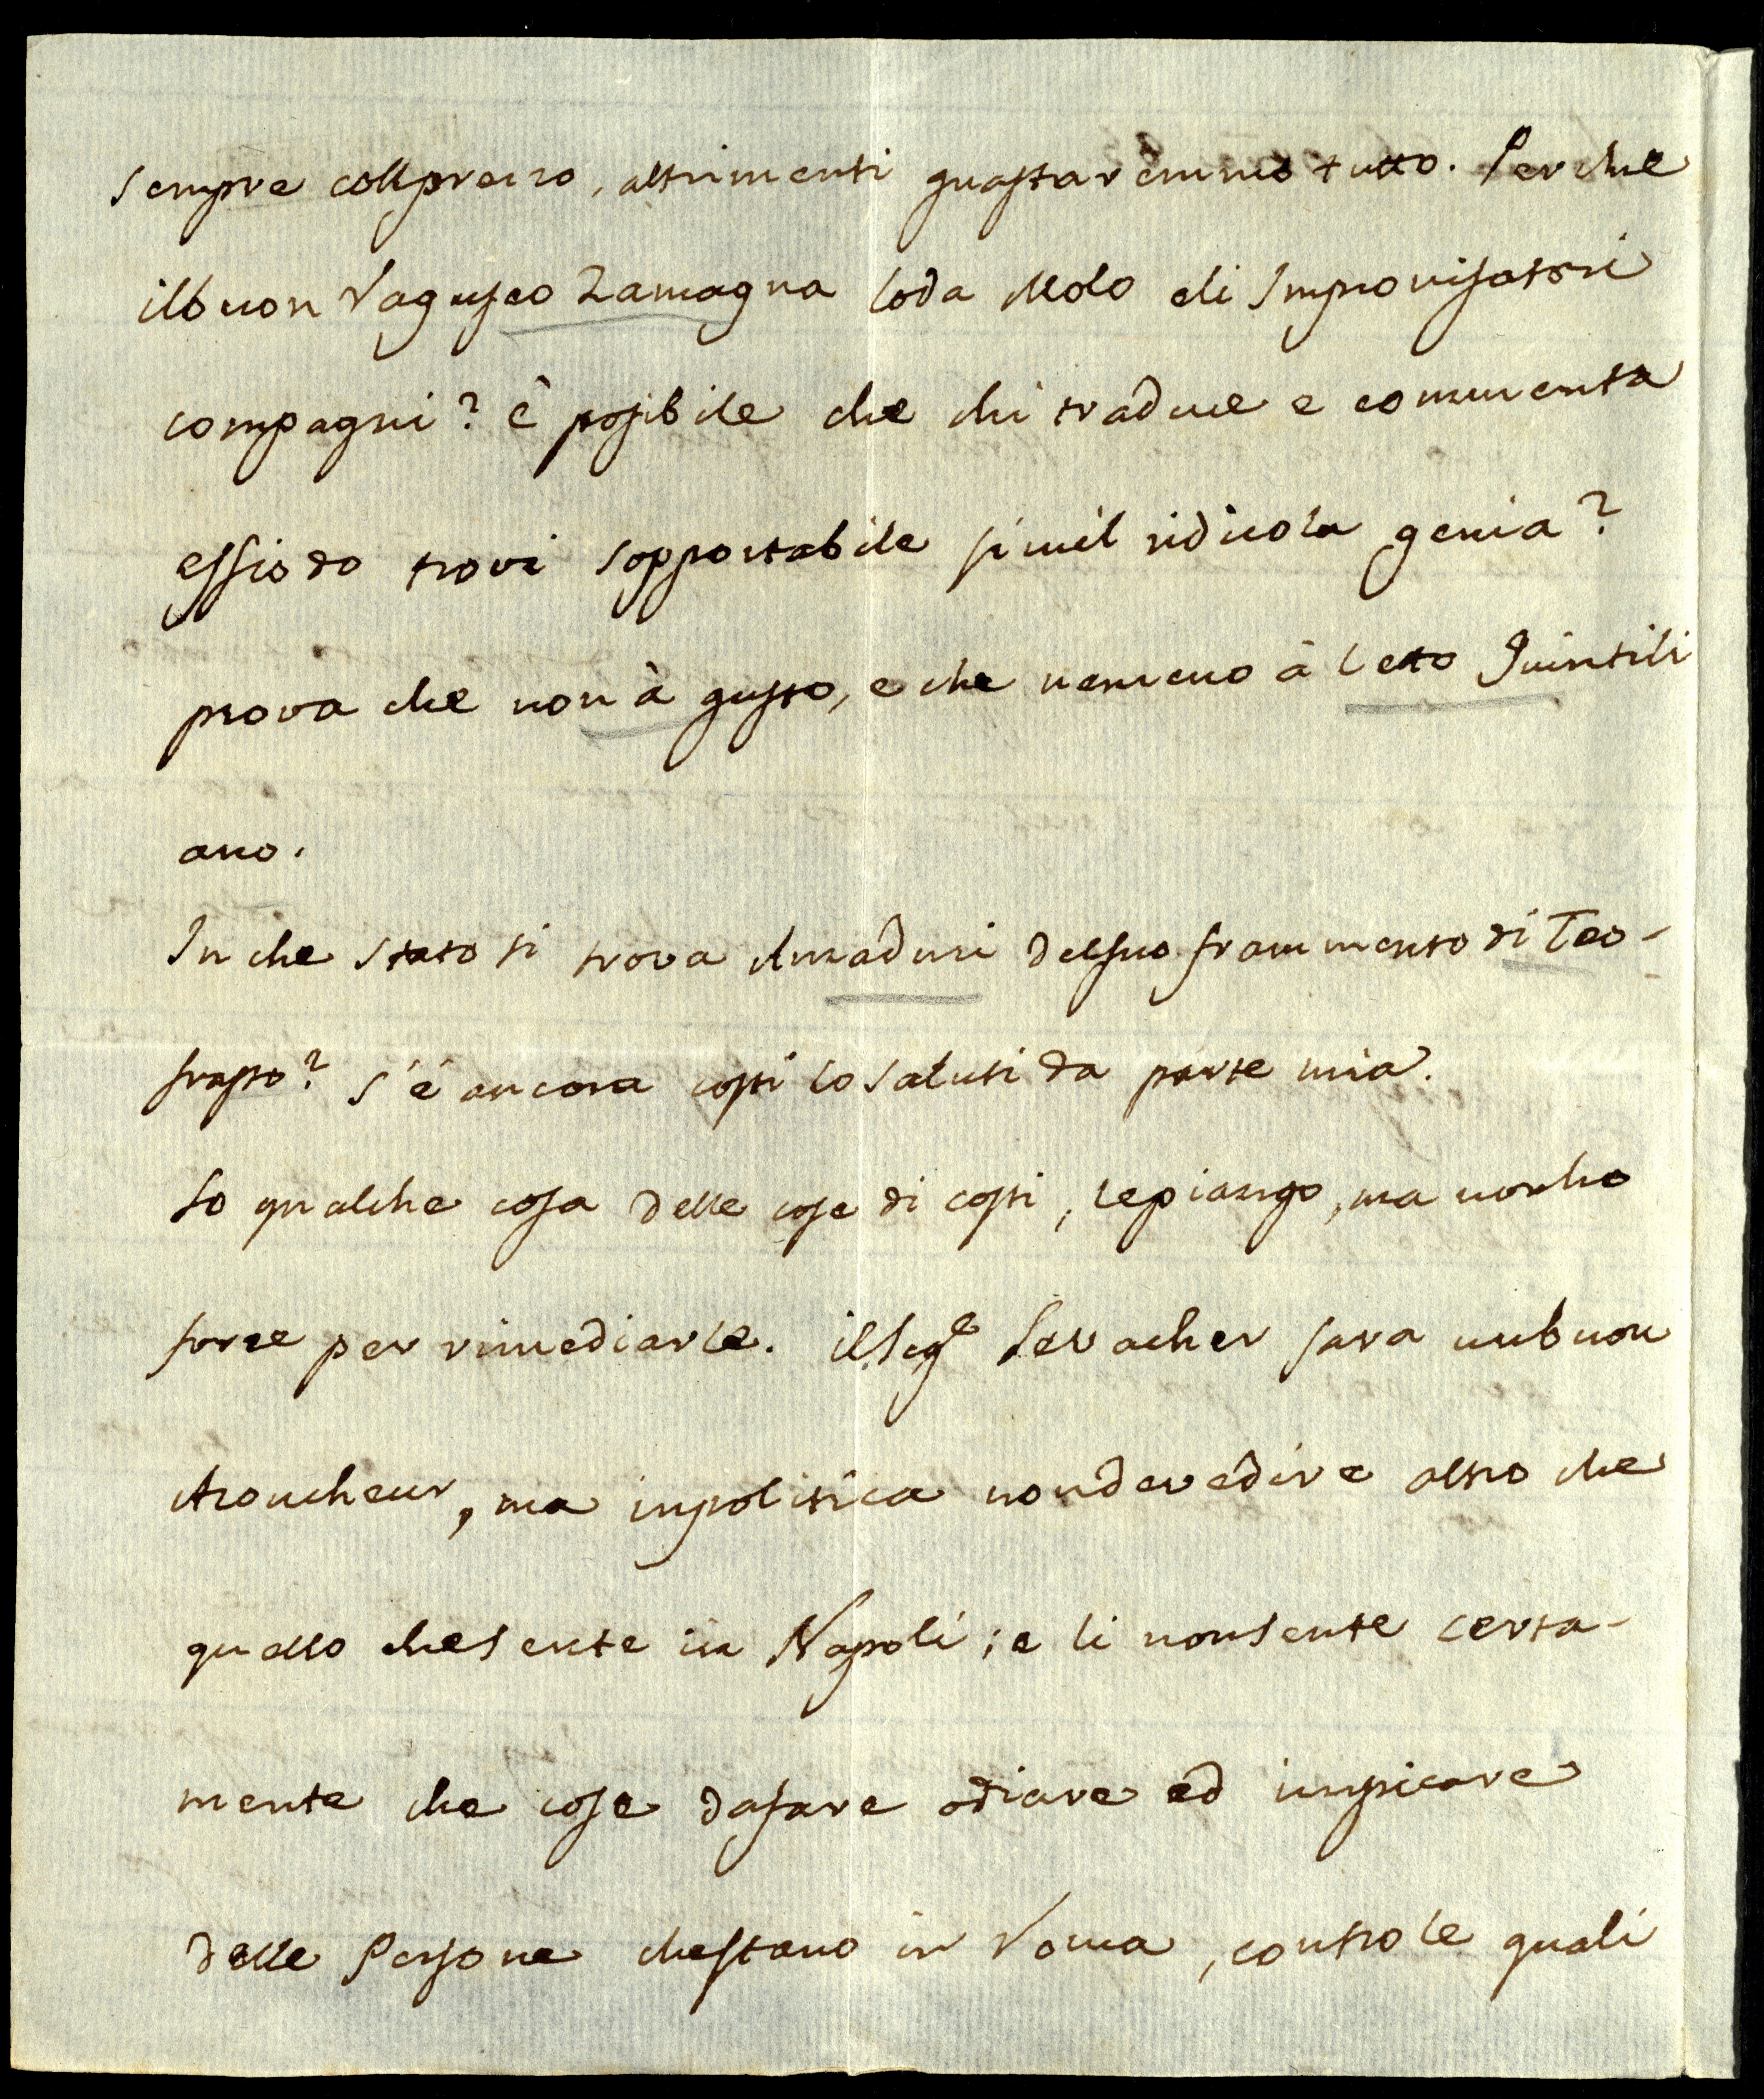 sempre coll prezzo, altrimenti guastaremmo tutto. Perche
il buon Raguseo Zamagna loda Molo eli Improvisatori
compagni? è possibile che chi traduce e commenta
Essiodo trovi sopportabile simil ridicola genia?
prova che non à gusto, e che nemeno à letto Quintili
ano.
In che stato si trova Amaduzi del suo frammento di Teo-
frasto? s'é ancora costi lo saluti da parte mia.
So qualche cosa delle cose di costi, le piango, ma non ho
forze per rimediarle. il Sig.e Servacher sara un buon
Acoucheur, ma in politica non deve dire altro che
quello che sente in Napoli; e li non sente certa-
mente che cose da fare odiare ed impicare
delle Persone che stano in Roma, contro le quali